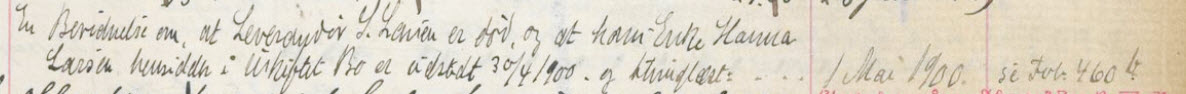 En Bevidnelse om, at Leverandør S. Larsen er død, og at hans Enke Hanna
Larsen hensidder i Uskiftet Bo er udstedt 30/4 1900. og thinglæst: - . . . 1 Mai 1900. se Fol: 460 b